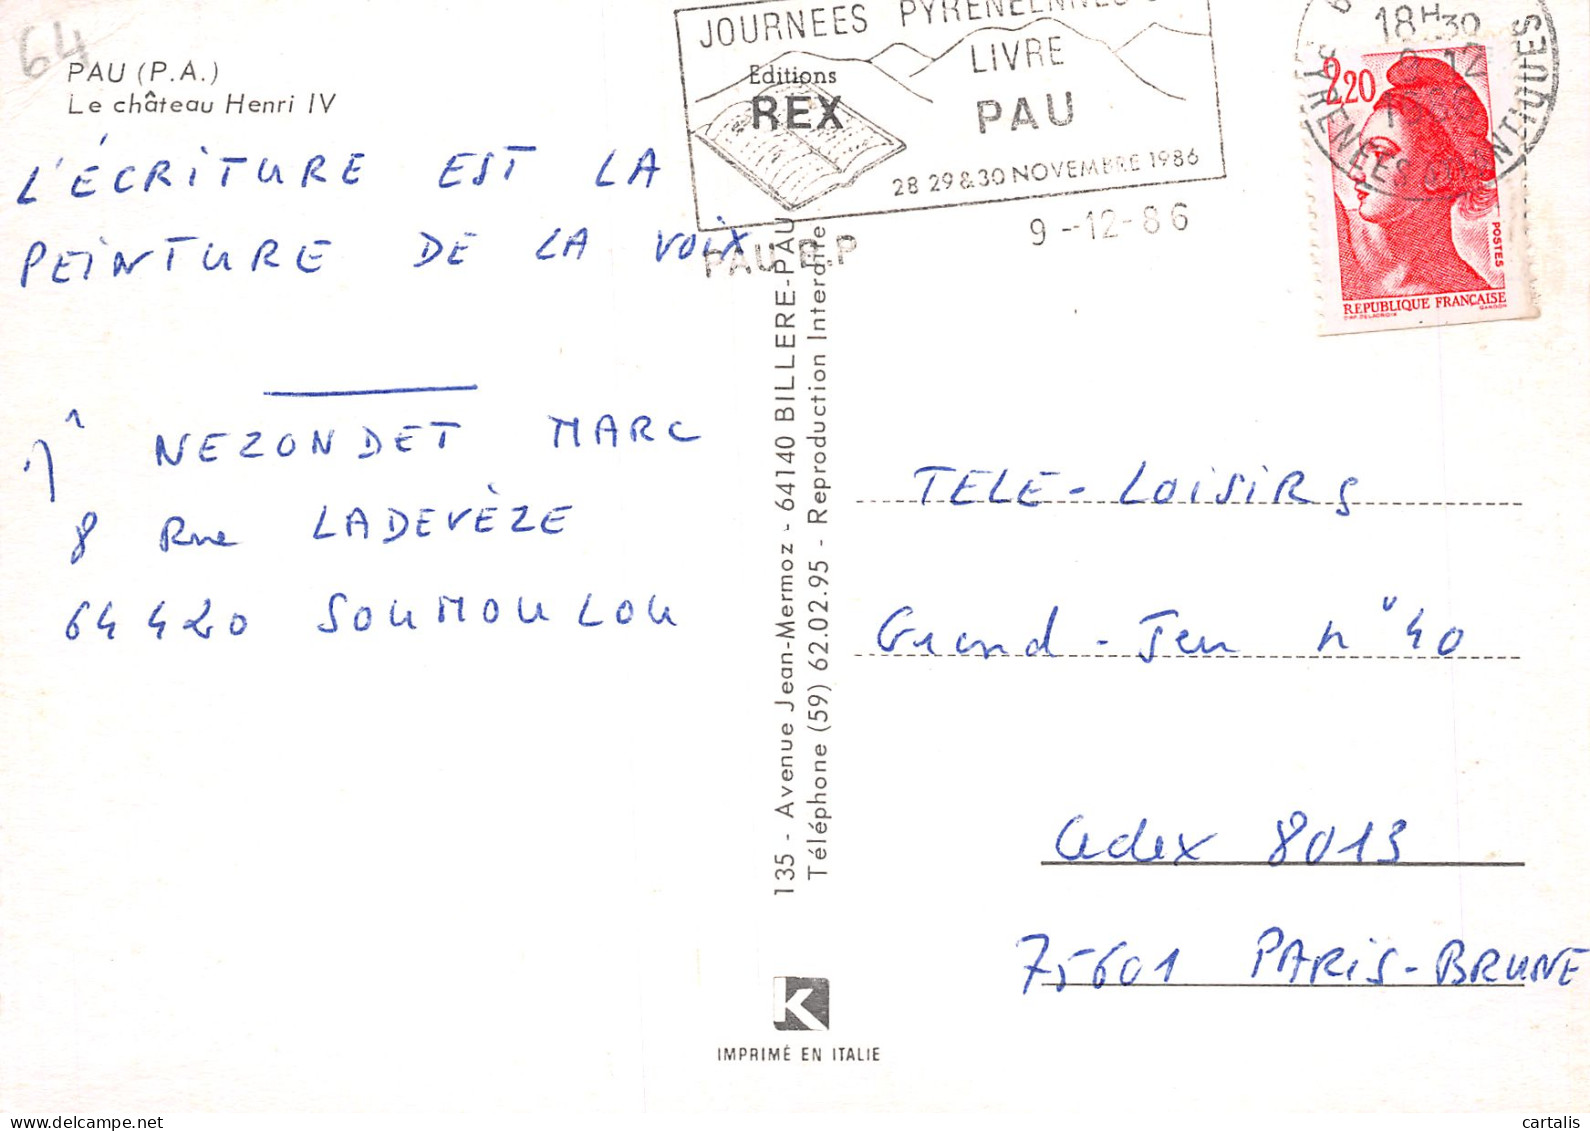 64
PAU (P.A.)
Le château Henri IV
L'ÉCRITURE EST LA
PEINTURE DE LA VOIX
NEZONDET MARC
8 Rue LADEVÈZE
64420 SOUMOULOU
JOURNEES PYRENEENNES
LIVRE
PAU
28 29 & 30 NOVEMBRE 1986
Editions
REX
PAU R.P
9-12-86
18H30
9-12
PYRENEES ATLANTIQUES
2,20
POSTES
REPUBLIQUE FRANÇAISE
135 - Avenue Jean-Mermoz - 64140 BILLERE-PAU
Téléphone (59) 62.02.95 - Reproduction Interdite
TELE-LOISIRS
Grand-Jeu n°40
Cedex 8013
75601 PARIS-BRUNE
K
IMPRIMÉ EN ITALIE
cartalis